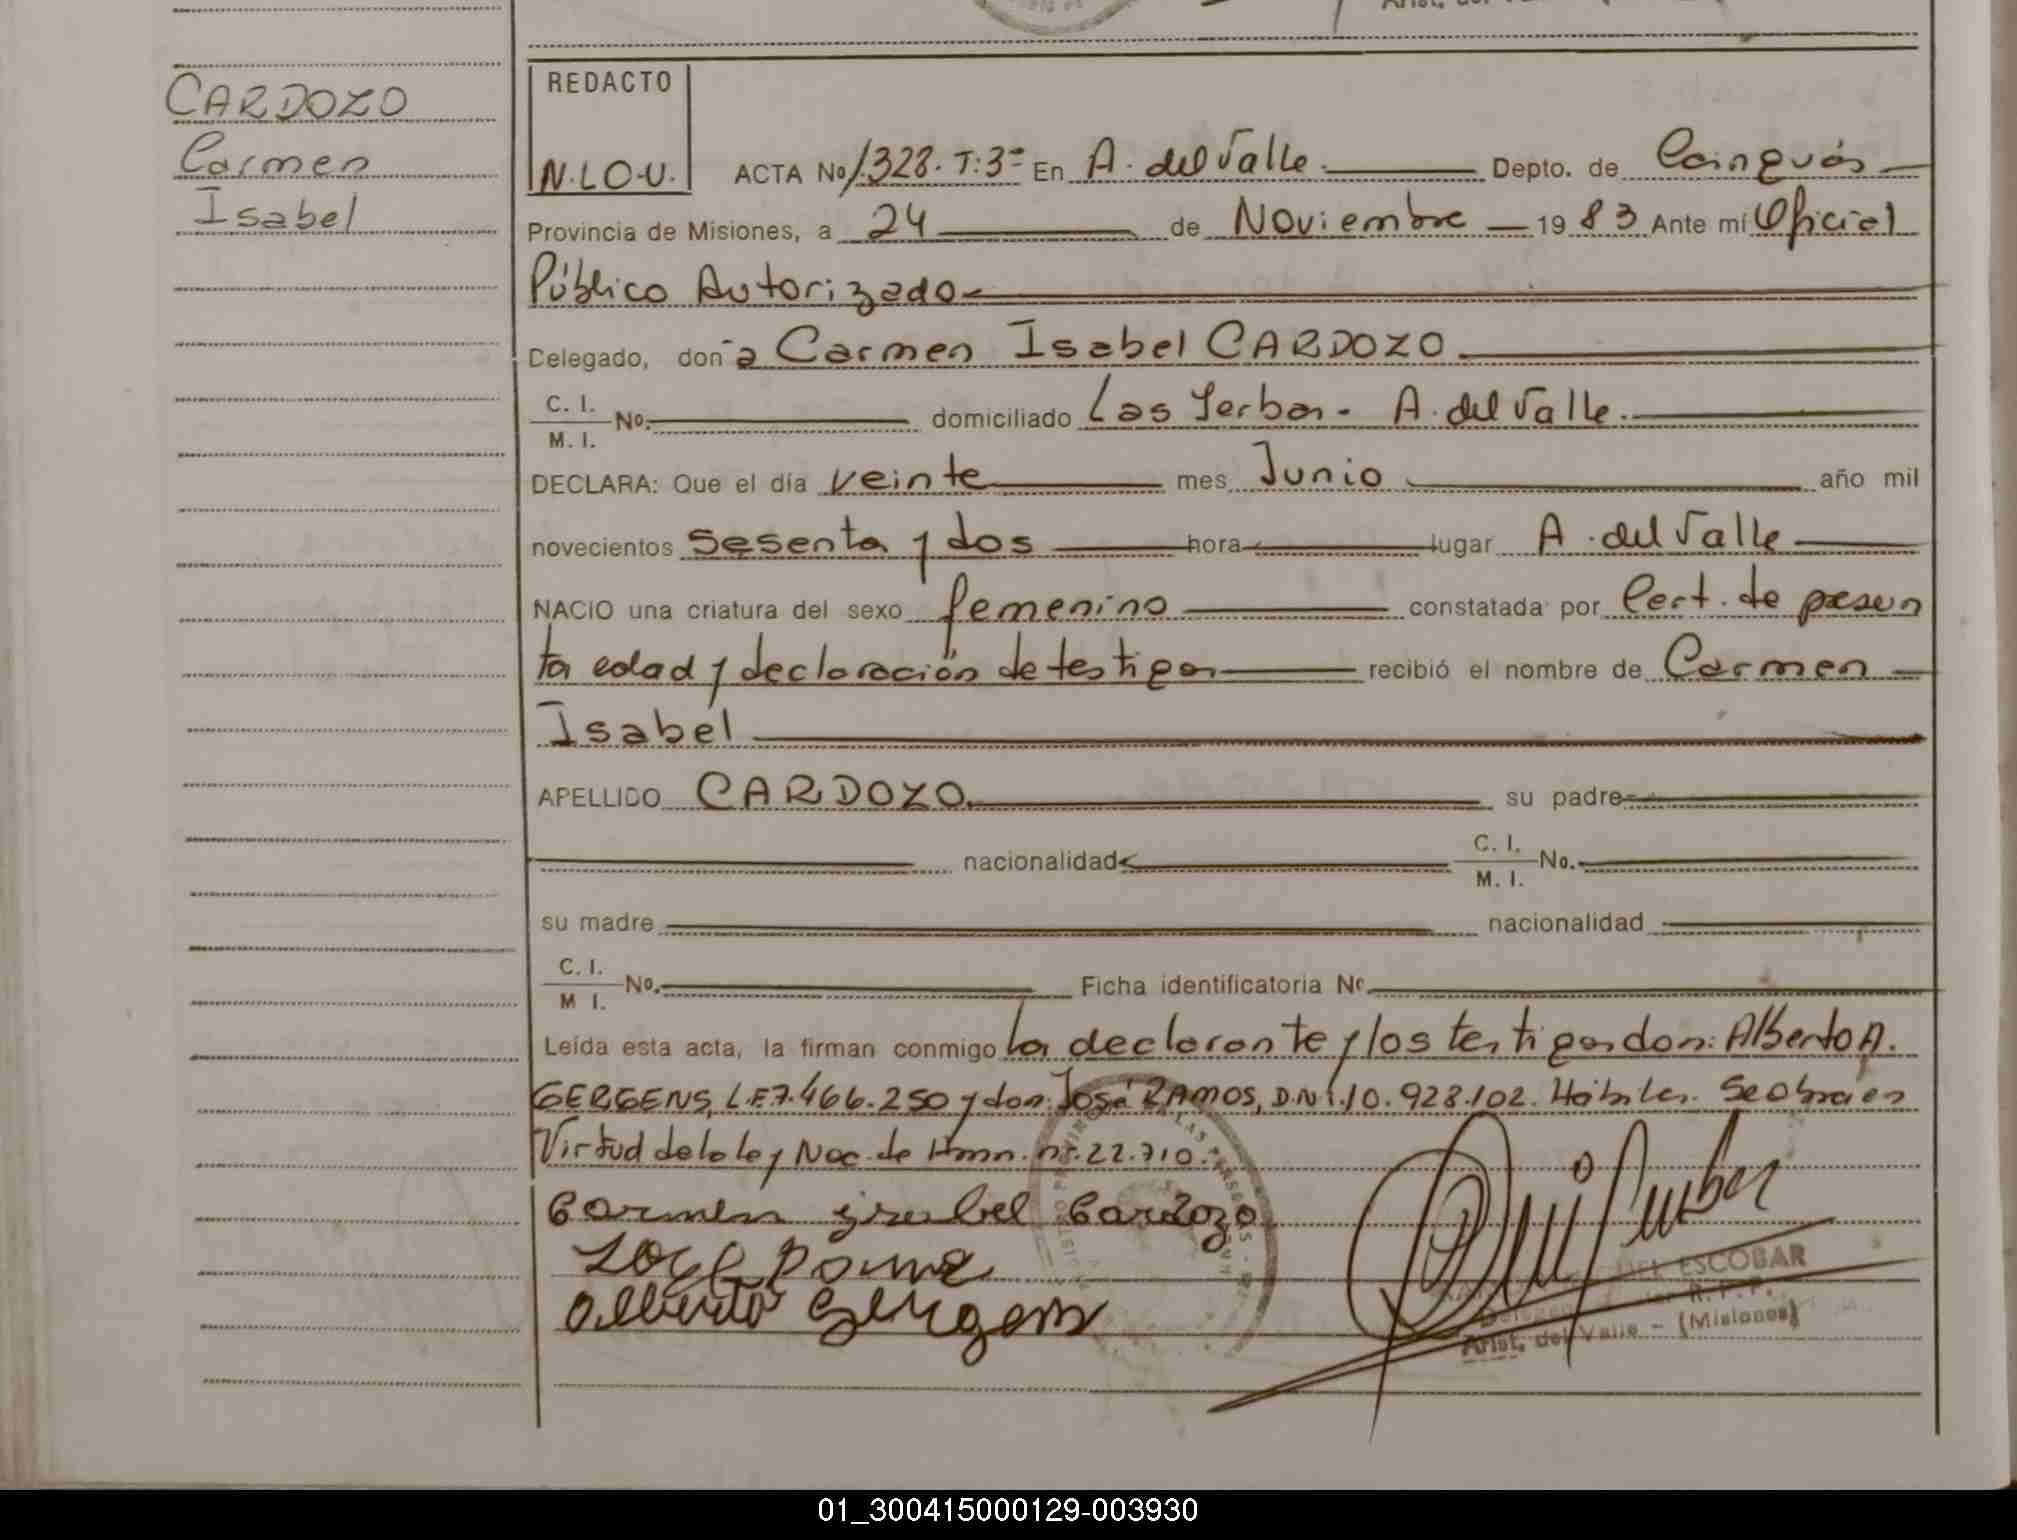 CARDOZO
Carmen
Isabel
REDACTO
N.LO.U.
ACTA No 1.328. T:3º En A. del Valle Depto. de Cainguás
Provincia de Misiones, a 24 de Noviembre 1983 Ante mí Oficial
Público Autorizado
Delegado, don a Carmen Isabel CARDOZO
C. I.
M. I. No. domiciliado Las Yerbas. A. del Valle.
DECLARA: Que el día veinte mes Junio año mil
novecientos sesenta y dos hora lugar A. del Valle
NACIO una criatura del sexo femenino constatada por Cert. de presun
ta edad y declaración de testigos recibió el nombre de Carmen
Isabel
APELLIDO CARDOZO su padre
nacionalidad C. I.
M. I. No.
su madre nacionalidad
C. I.
M I. No. Ficha identificatoria No
Leída esta acta, la firman conmigo la declarante y los testigos don: Alberto A.
GERGENS, L.E.7.466.250 y don José RAMOS, D.N.I.10.928.102. Hábiles. Se obra en
Virtud de la ley Nac. de nº.22.710.
Carmen ysabel Cardozo
Alberto Gergens
DEL ESCOBAR
R. P. P.
Arist. del Valle - (Misiones)
01_300415000129-003930